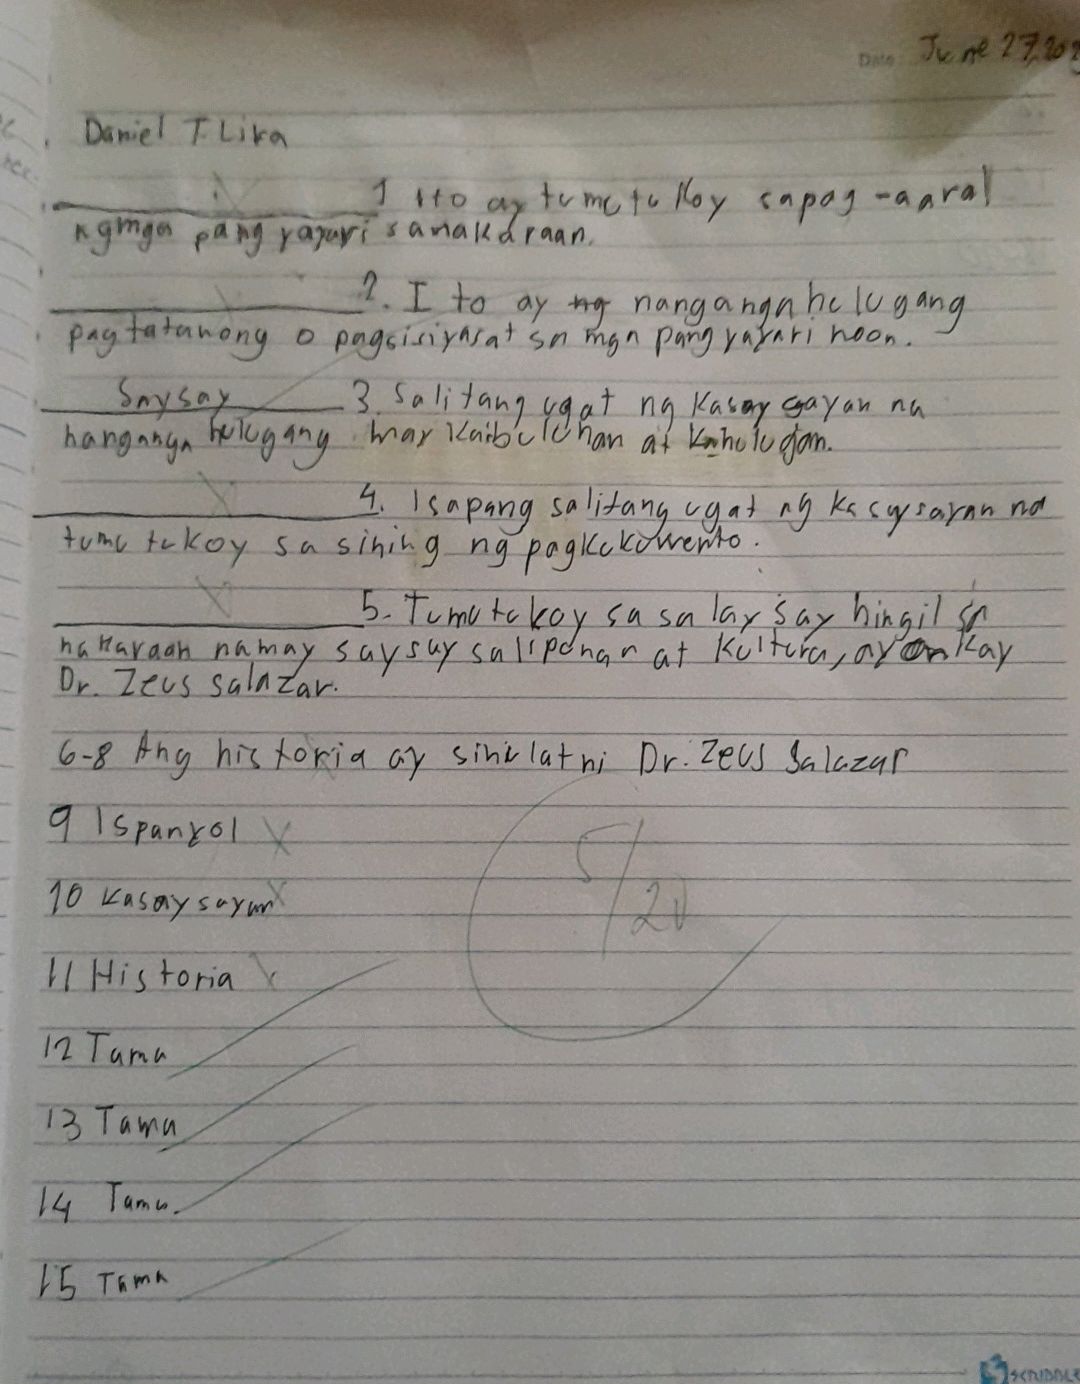 Date: June 27, 202
Daniel T. Lira
1 Ito ay tumutukoy sapag-aaral
ngmga pang yayari sanakaraan.
2. I to ay ng nangangahulugang
pagtatanong o pagsisiyasat sa mga pang yayari noon.
Saysay 3. Salitang ugat ng Kasay sayan na
nangangahulugang may Kaibuluhan at Kahulugan.
4. Isapang salitang ugat ng kasaysayan na
tumutukoy sa sining ng pagkukuwento.
5. Tumutukoy sa sa lay say hingil sa
nakaraan namay saysay salipunan at Kultura, ayon kay
Dr. Zeus Salazar.
6-8 Ang historia ay sinulat ni Dr. Zeus Salazar
9 Ispanyol
5/20
10 Kasaysayan
11 Historia
12 Tama
13 Tama
14 Tama.
15 Tama
SCRIBBLE